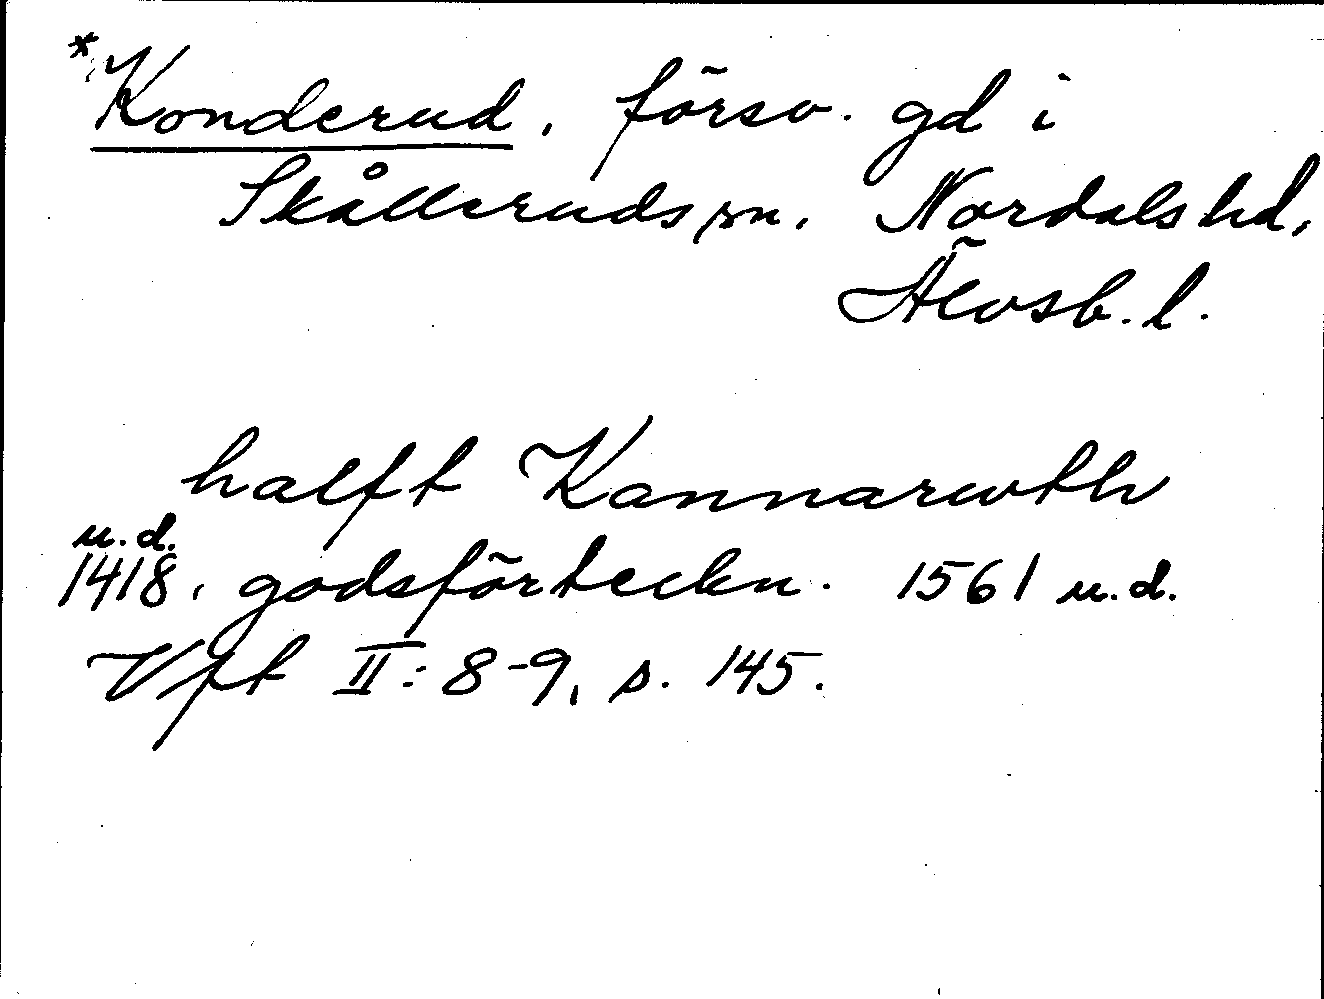 *Konderud, försv. gd i
Skålleruds sn. Nordals hd,
Älvsb. l.
halft Kannarwth
u.d.
1418, godsförteckn. 1561 u.d.
Vft II: 8-9, s. 145.